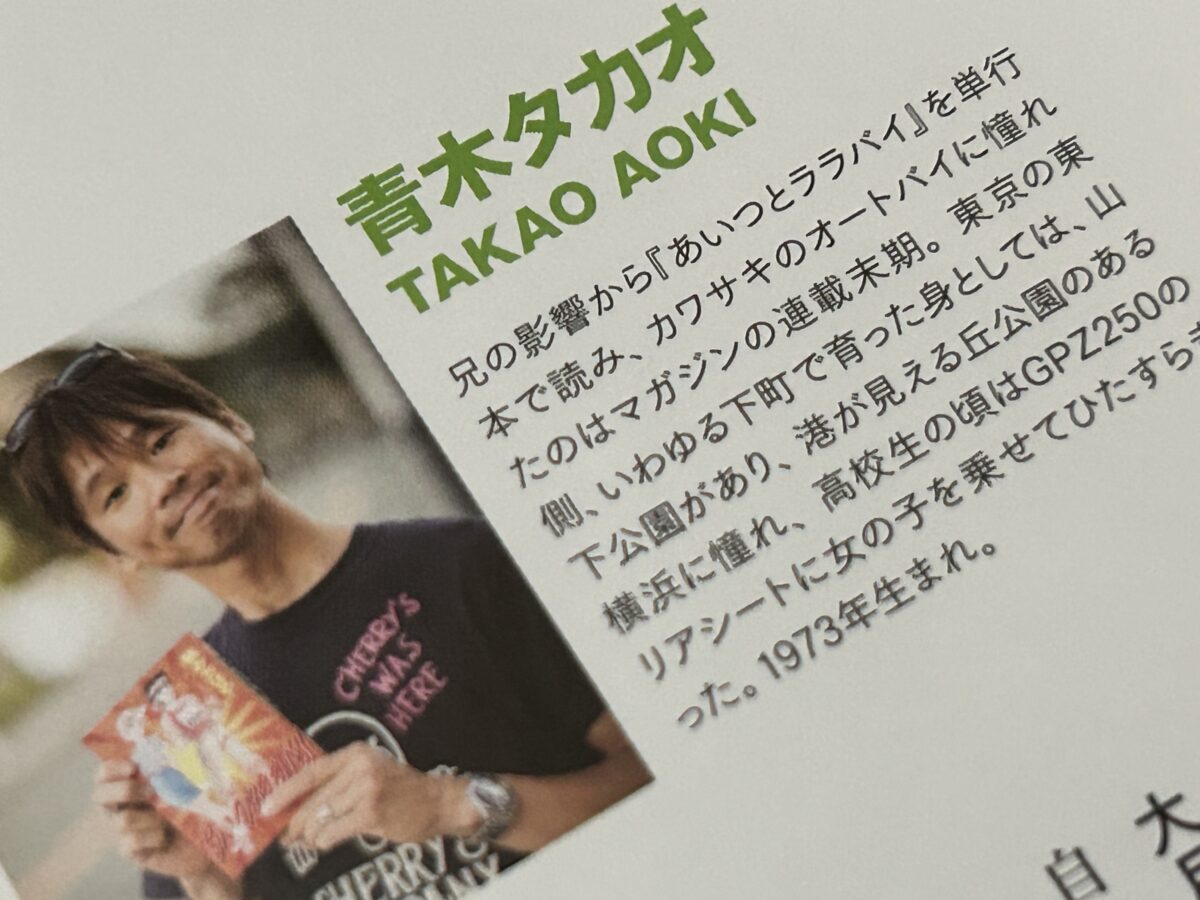 青木タカオ
TAKAO AOKI
兄の影響から『あいつとララバイ』を単行
本で読み、カワサキのオートバイに憧れ
たのはマガジンの連載末期。東京の東
側、いわゆる下町で育った身としては、山
下公園があり、港が見える丘公園のある
横浜に憧れ、高校生の頃はGPZ250の
リアシートに女の子を乗せてひたすら
った。1973年生まれ。
CHERRY'S
WAS
HERE
CHERRY'S
大
自